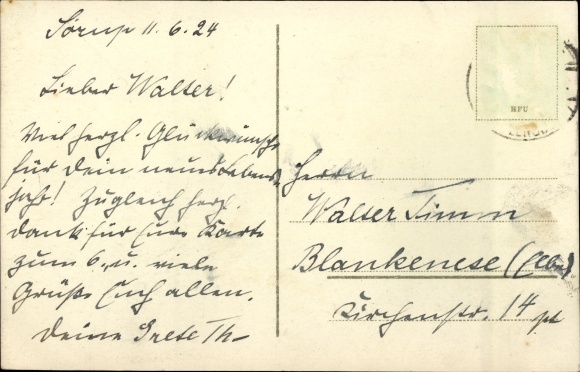 Sörup 11.6.24
Lieber Walter!
Viel herzl. Glückwünsche
für Dein neues Lebens-
jahr! Zugleich herz.
Dank für Eure Karte
zum 6. u. viele
Grüße Euch allen.
Deine Grete Th-
Herrn
Walter Timm
Blankenese (Elbe)
Kirchenstr. 14
BFU